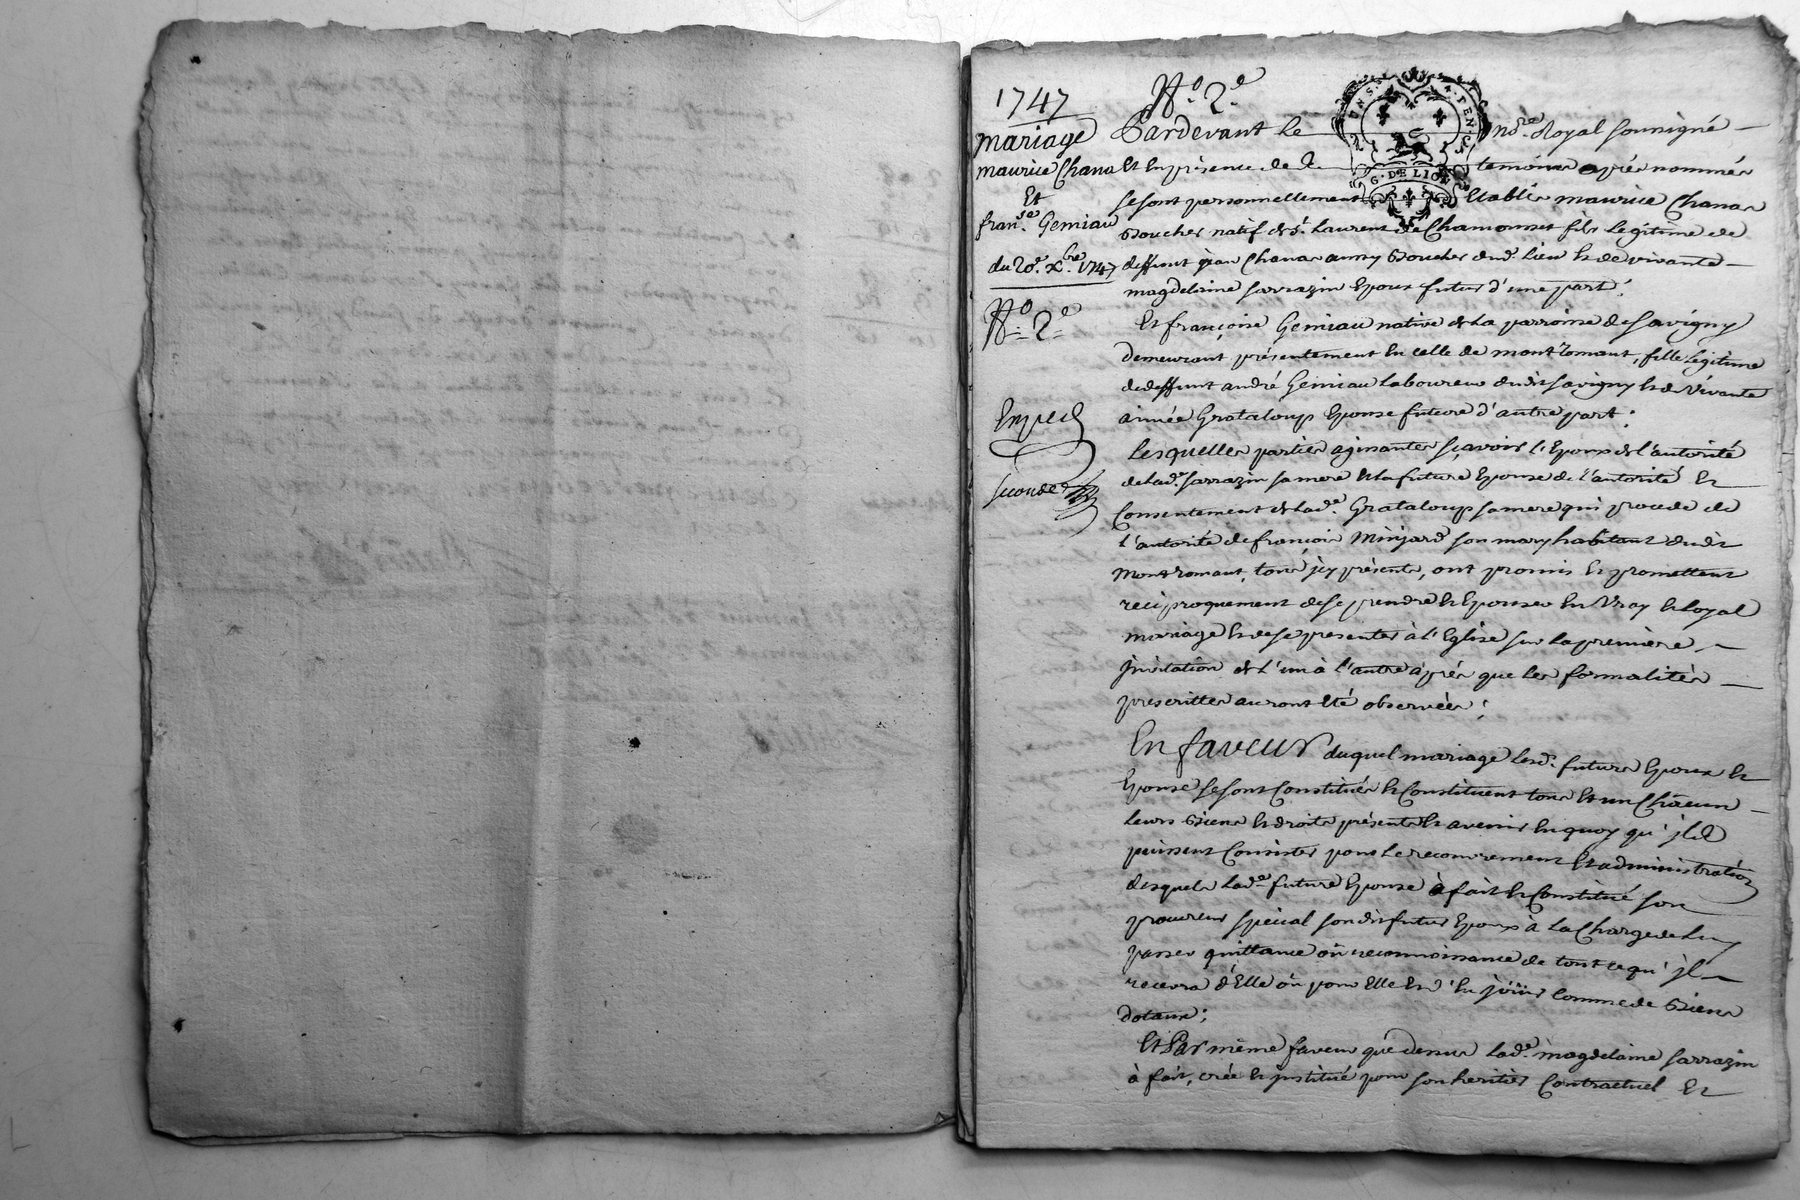 1747
N.o 2.e
mariage
maurice Chana
Et
fran.se Geniau
du 20.e X.bre 1747
N.o 2.e
Exped
seconde
UN S. 4. DEN.
G. DE LION
Pardevant Le no.re Royal sousigné
Et En présence de temoins après nommés
se sont personnellement Etablis maurice Chana
Boucher natif de S.t Laurent de Chamousset fils Legitime de
deffunt jean Chana aussy Boucher dud. Lieu et de vivante
magdelaine sarrazin Epoux futur d'une part;
Et françoise Geniau native de La parroisse de savigny
demeurant présentement En celle de montromant, fille Legitime
de deffunt andré Geniau Laboureur dudit savigny et de vivante
aimée Grataloup Epouse future d'autre part;
Lesquelles parties agissantes sçavoir L'Epoux de L'autorité
de Lad.e sarrazin sa mere et La future Epouse de L'autorité Et
Consentement de Lad.e Grataloup sa mere qui procede de
L'autorité de françois Minjard son mary habitant dudit
montromant, tous jcy présents, ont promis et promettent
reciproquement de se prendre et Epouser En Vray et Loyal
mariage et de se presenter à L'Eglise sur La première
jnvitation de L'un à L'autre après que Les formalités
prescrittes auront Eté observées;
En faveur duquel mariage Lesd. futurs Epoux et
Epouse se sont Constitués et Constituent tous Et un Chacun
Leurs Biens et droits présents et avenir En quoy qu'jls
puissent Consister pour Le recouvrement Et administration
desquels Lad.e future Epouse à fait et Constitué son
procureur spécial sondit futur Epoux à La Charge de Luy
passer quittance où reconnoissance de tout ce qu'jl
recevra d'Elle où pour Elle et d'En joüir Comme de Biens
dotaux;
Et Par même faveur que dessus Lad.e magdelaine sarrazin
à fait, crée et jnstitué pour son heritier Contractuel Et